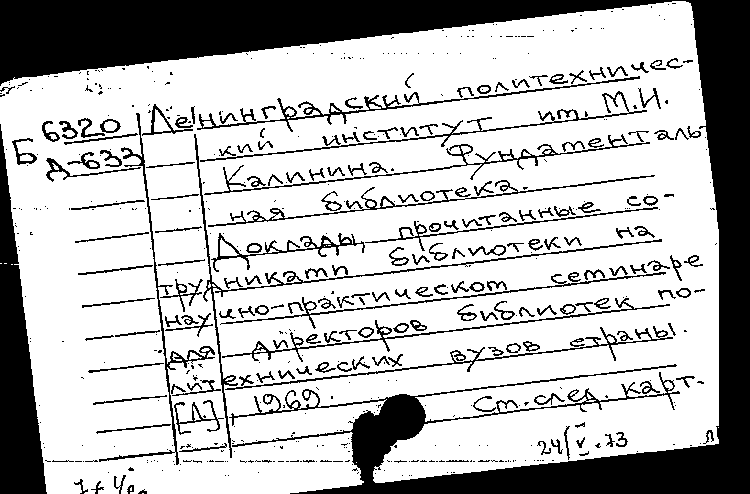 Б 6320
Д-633
Ленинградский политехничес-
кий институт им. М.И.
Калинина. Фундаменталь-
ная библиотека.
Доклады, прочитанные со-
трудниками библиотеки на
научно-практическом семинаре
для директоров библиотек по-
литехнических вузов страны.
[Л.], 1969.
См. след. карт.
24/V.73